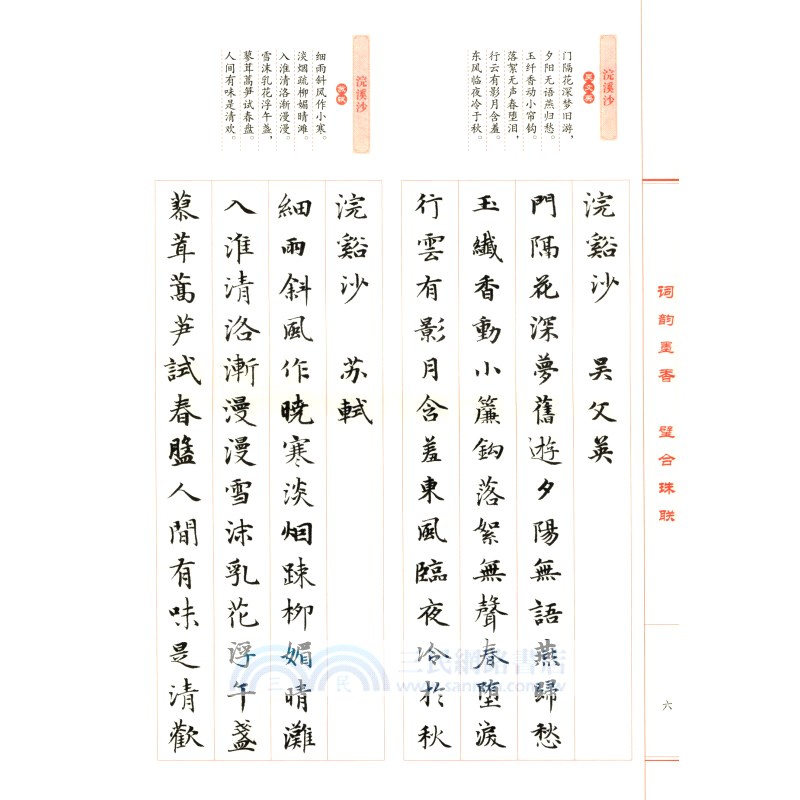 词韵墨香 璧合珠联
六
浣溪沙
吴文英
门隔花深梦旧游,
夕阳无语燕归愁。
玉纤香动小帘钩。
落絮无声春堕泪,
行云有影月含羞。
东风临夜冷于秋。
浣谿沙 吴文英
門隔花深夢舊遊夕陽無語燕歸愁
玉纖香動小簾鈎落絮無聲春堕淚
行雲有影月含羞東風臨夜冷於秋
浣溪沙
苏轼
细雨斜风作小寒。
淡烟疏柳媚晴滩。
入淮清洛渐漫漫。
雪沫乳花浮午盏,
蓼茸蒿笋试春盘。
人间有味是清欢。
浣谿沙 苏軾
細雨斜風作曉寒淡烟疎柳媚晴灘
入淮清洛漸漫漫雪沫乳花浮午盞
蓼茸蒿笋試春盤人間有味是清歡
三民
三民網路書店
www.sanmin.com.tw